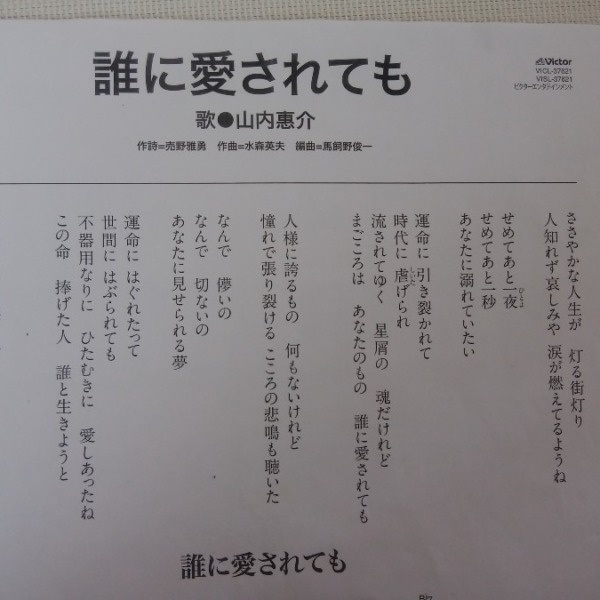 誰に愛されても
歌●山内惠介
作詩=売野雅勇 作曲=水森英夫 編曲=馬飼野俊一
Victor
VICL-37621
VISL-37621
ビクターエンタテインメント
ささやかな人生が 灯る街灯り
人知れず哀しみや 涙が燃えてるようね
せめてあと一夜
ひとよ
せめてあと一秒
あなたに溺れていたい
運命に 引き裂かれて
時代に 虐げられ
しいた
流されてゆく 星屑の 魂だけれど
まごころは あなたのもの 誰に愛されても
人様に誇るもの 何もないけれど
憧れで張り裂ける こころの悲鳴も聴いた
なんで 儚いの
なんで 切ないの
あなたに見せられる夢
運命に はぐれたって
世間に はぶられても
不器用なりに ひたむきに 愛しあったね
この命 捧げた人 誰と生きようと
誰に愛されても